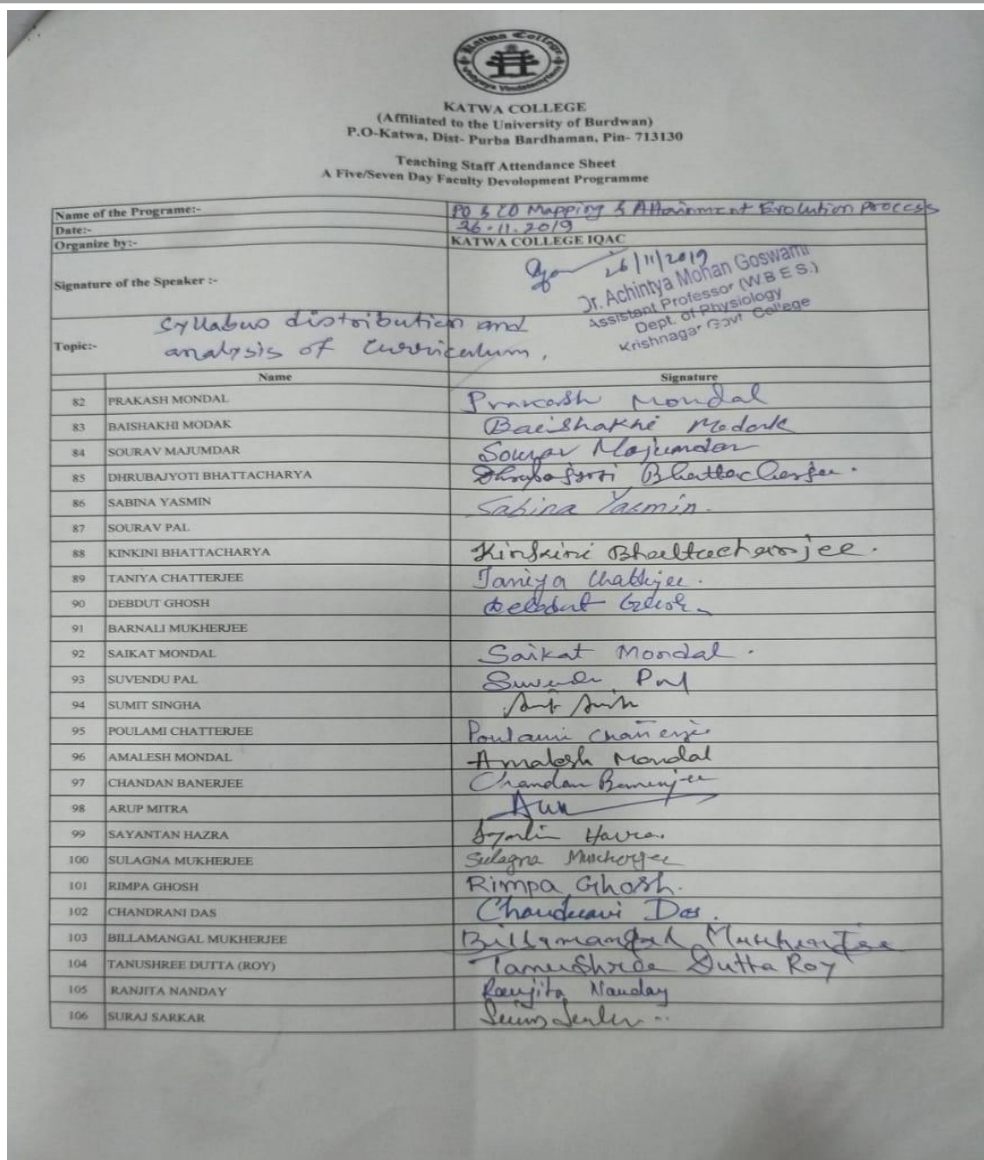 Katwa College
KATWA COLLEGE
(Affiliated to the University of Burdwan)
P.O-Katwa, Dist- Purba Bardhaman, Pin- 713130
Teaching Staff Attendance Sheet
A Five/Seven Day Faculty Devolopment Programme
Name of the Programe:- PO & CO Mapping & Attainment Evolution Process
Date:- 26.11.2019
Organize by:- KATWA COLLEGE IQAC
Signature of the Speaker :- 26/11/2019
Dr. Achintya Mohan Goswami
Assistant Professor (W.B.E.S.)
Dept. of Physiology
Krishnagar Govt College
Topic:- Syllabus distribution and
analysis of curriculum.
Name Signature
82 PRAKASH MONDAL Prakash Mondal
83 BAISHAKHI MODAK Baishakhi Modak
84 SOURAV MAJUMDAR Sourav Majumdar
85 DHRUBAJYOTI BHATTACHARYA Dhrubajyoti Bhattacherjee.
86 SABINA YASMIN Sabina Yasmin.
87 SOURAV PAL
88 KINKINI BHATTACHARYA Kinkini Bhattacharjee.
89 TANIYA CHATTERJEE Taniya Chatterjee.
90 DEBDUT GHOSH Debdut Ghosh
91 BARNALI MUKHERJEE
92 SAIKAT MONDAL Saikat Mondal.
93 SUVENDU PAL Suvendu Pal
94 SUMIT SINGHA
95 POULAMI CHATTERJEE Poulami Chatterjee
96 AMALESH MONDAL Amalesh Mondal
97 CHANDAN BANERJEE Chandan Banerjee
98 ARUP MITRA
99 SAYANTAN HAZRA
100 SULAGNA MUKHERJEE Sulagna Mukherjee
101 RIMPA GHOSH Rimpa Ghosh.
102 CHANDRANI DAS Chandrani Das.
103 BILLAMANGAL MUKHERJEE Billamangal Mukherjee
104 TANUSHREE DUTTA (ROY) Tanushree Dutta Roy
105 RANJITA NANDAY Ranjita Nanday
106 SURAJ SARKAR